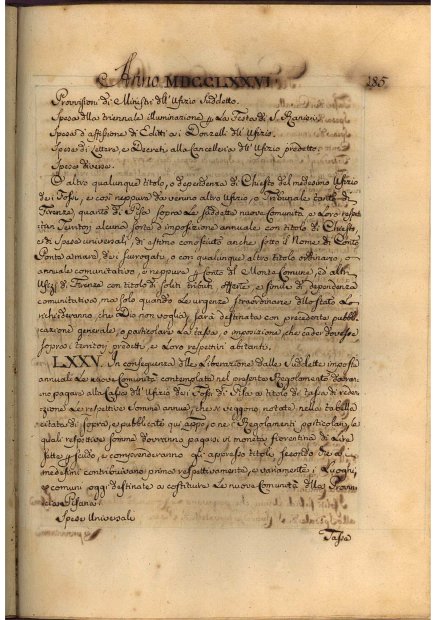 Anno MDCCLXXVI. 185
Provvisioni di Ministri dell'Ufizio Suddetto.
Spesa della triennale illuminazione p La Festa di S. Ranieri
Spesa d'affissione di Editti a i Donzelli dell'Ufizio.
Spese di Lettere, e Decreti alla Cancelleria dell'Ufizio predetto.
Spese diverse.
O altro qualunque titolo, o dependenza di Chiesto del medesimo Ufizio
dei Fossi, e così neppure da veruno altro Ufizio, o Tribunale tanto di
Firenze, quanto di Pisa sopra Le suddette nuove Comunità, e Loro respet-
tivi Territorj alcuna sorta d'imposizione annuale con titolo di Chiesto,
e di Spese universali, di estimo conosciuto anche sotto il Nome di Conto
Ponte a mare dei surrogati, o con qualunque altro titolo ordinario, o
annuale comunitativo, e neppure p Conto del Monte Comune, ed altri
Ufizj di Firenze con titolo di soliti tributi, offerte, e simile di dependenza
comunitativa, ma solo quando Le urgenze straordinarie dello stato Lo
richiederanno, che Dio non voglia, sarà destinata con precedente pubbli-
cazione generale, o particolare La tassa, o imposizione, che cader dovesse
sopra i territorj predetti, e Loro respettivi abitanti.
LXXV. In conseguenza della Liberazione dalle suddette imposizioni
annuali Le nuove Comunità contemplate nel presente Regolamento dovran-
no pagare alla Cassa dell'Ufizio dei Fossi di Pisa a titolo di tassa di reden-
zione Le respettive somme annue, che si veggono notate nella tabella
citata di sopra, e pubblicate qui appresso ne i Regolamenti particolari, le
quali respettive somme dovranno pagarsi in moneta fiorentina di Lire
sette p scudo, e comprenderanno gli appresso titoli, secondo che ai
medesimi contribuivano prima respettivamente, e variamente i Luoghi,
e comuni oggi destinate a costituire Le nuove Comunità della Provin-
cia Pisana.
Spese Universali
Tassa